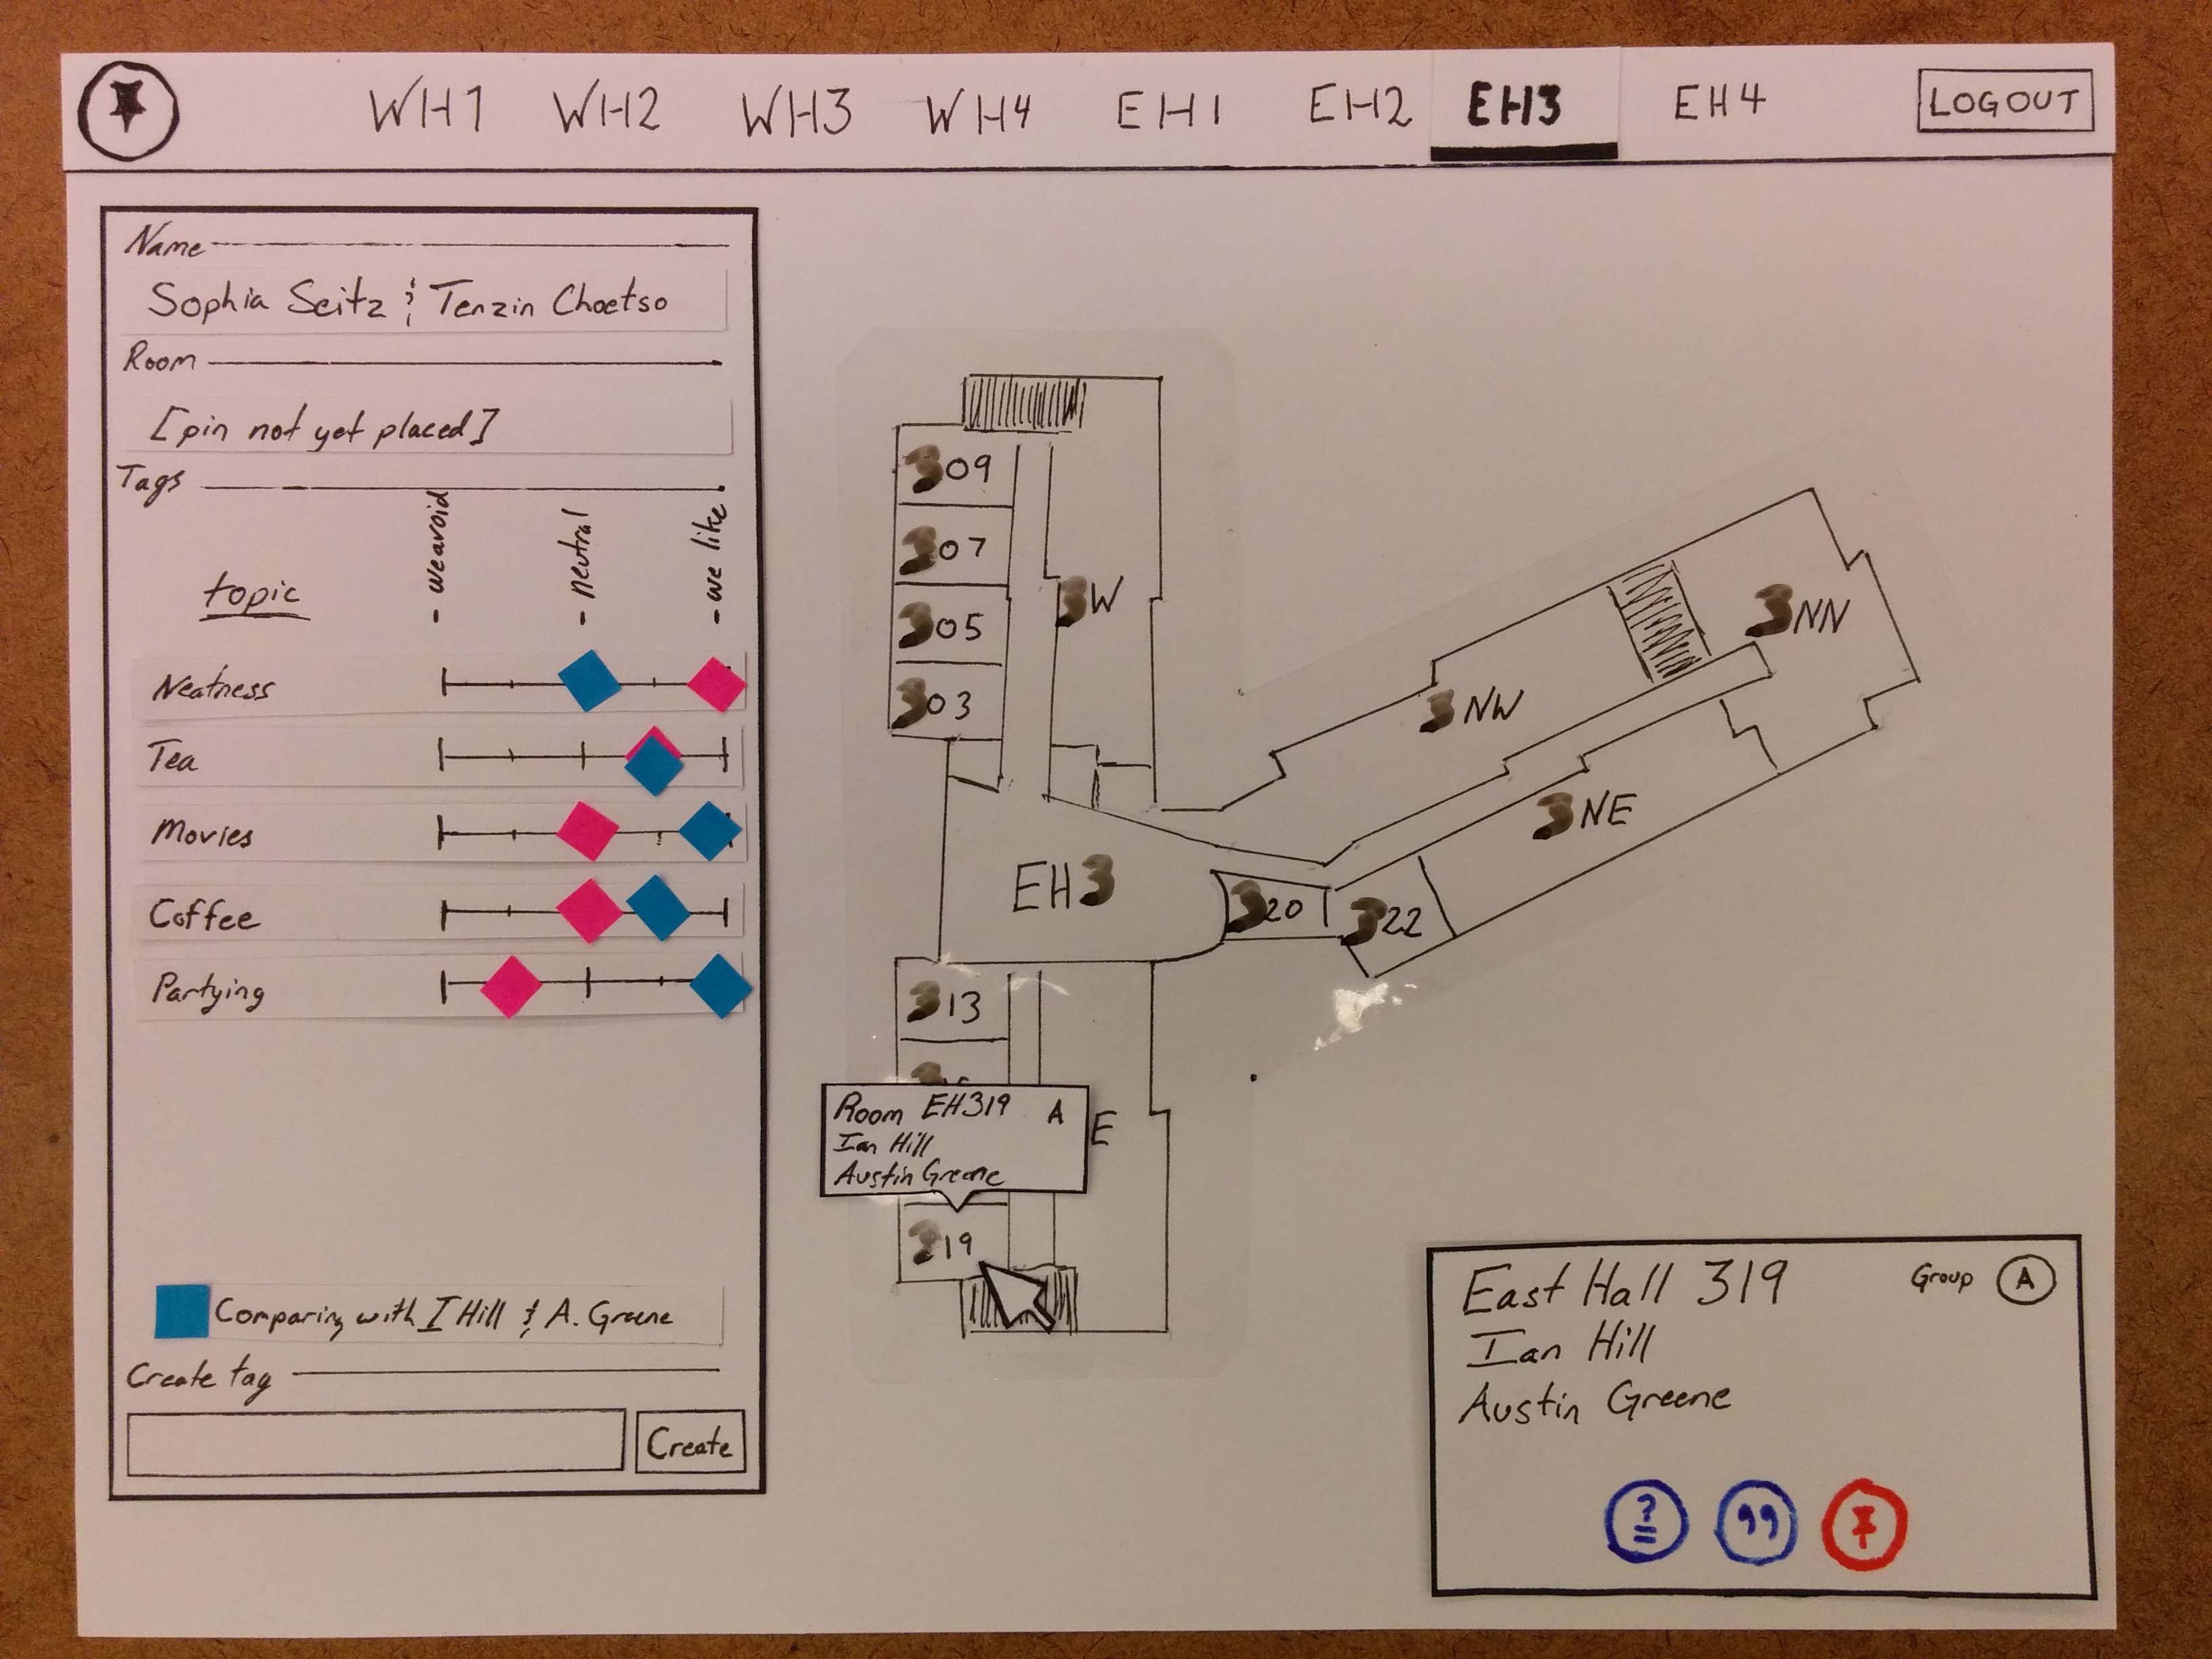 WH1 WH2 WH3 WH4 EH1 EH2 EH3 EH4 LOGOUT
Name
Sophia Seitz & Tenzin Choetso
Room
[pin not yet placed]
Tags
topic
- we avoid
- neutral
- we like
Neatness
Tea
Movies
Coffee
Partying
Comparing with I Hill & A. Greene
Create tag
Create
309
307
305
303
3W
3NW
3NN
3NE
EH3
320
322
313
E
Room EH319 A
Ian Hill
Austin Greene
319
East Hall 319 Group A
Ian Hill
Austin Greene
? =
99